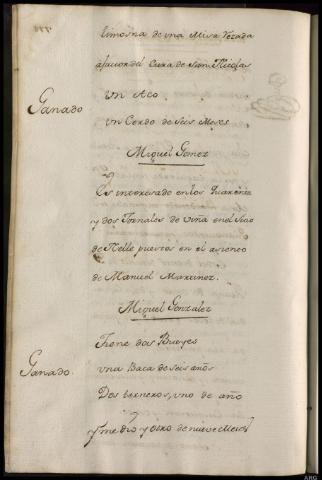 limosna de una Misa Rezada
a favor del Cura de San Nicolas
Ganado
Un
Un Cerdo de seis Meses
Miquel Gomez
Es interesado en los quarenta
y dos Jornales de viña en el sitio
de Nelle puestos en el asiento
de Manuel Martinez.
Miquel Gonzalez
Ganado.
Tiene dos Bueyes
una Baca de seis años
Dos terneros, uno de año
y medio y otro de nueve Meses
ARG